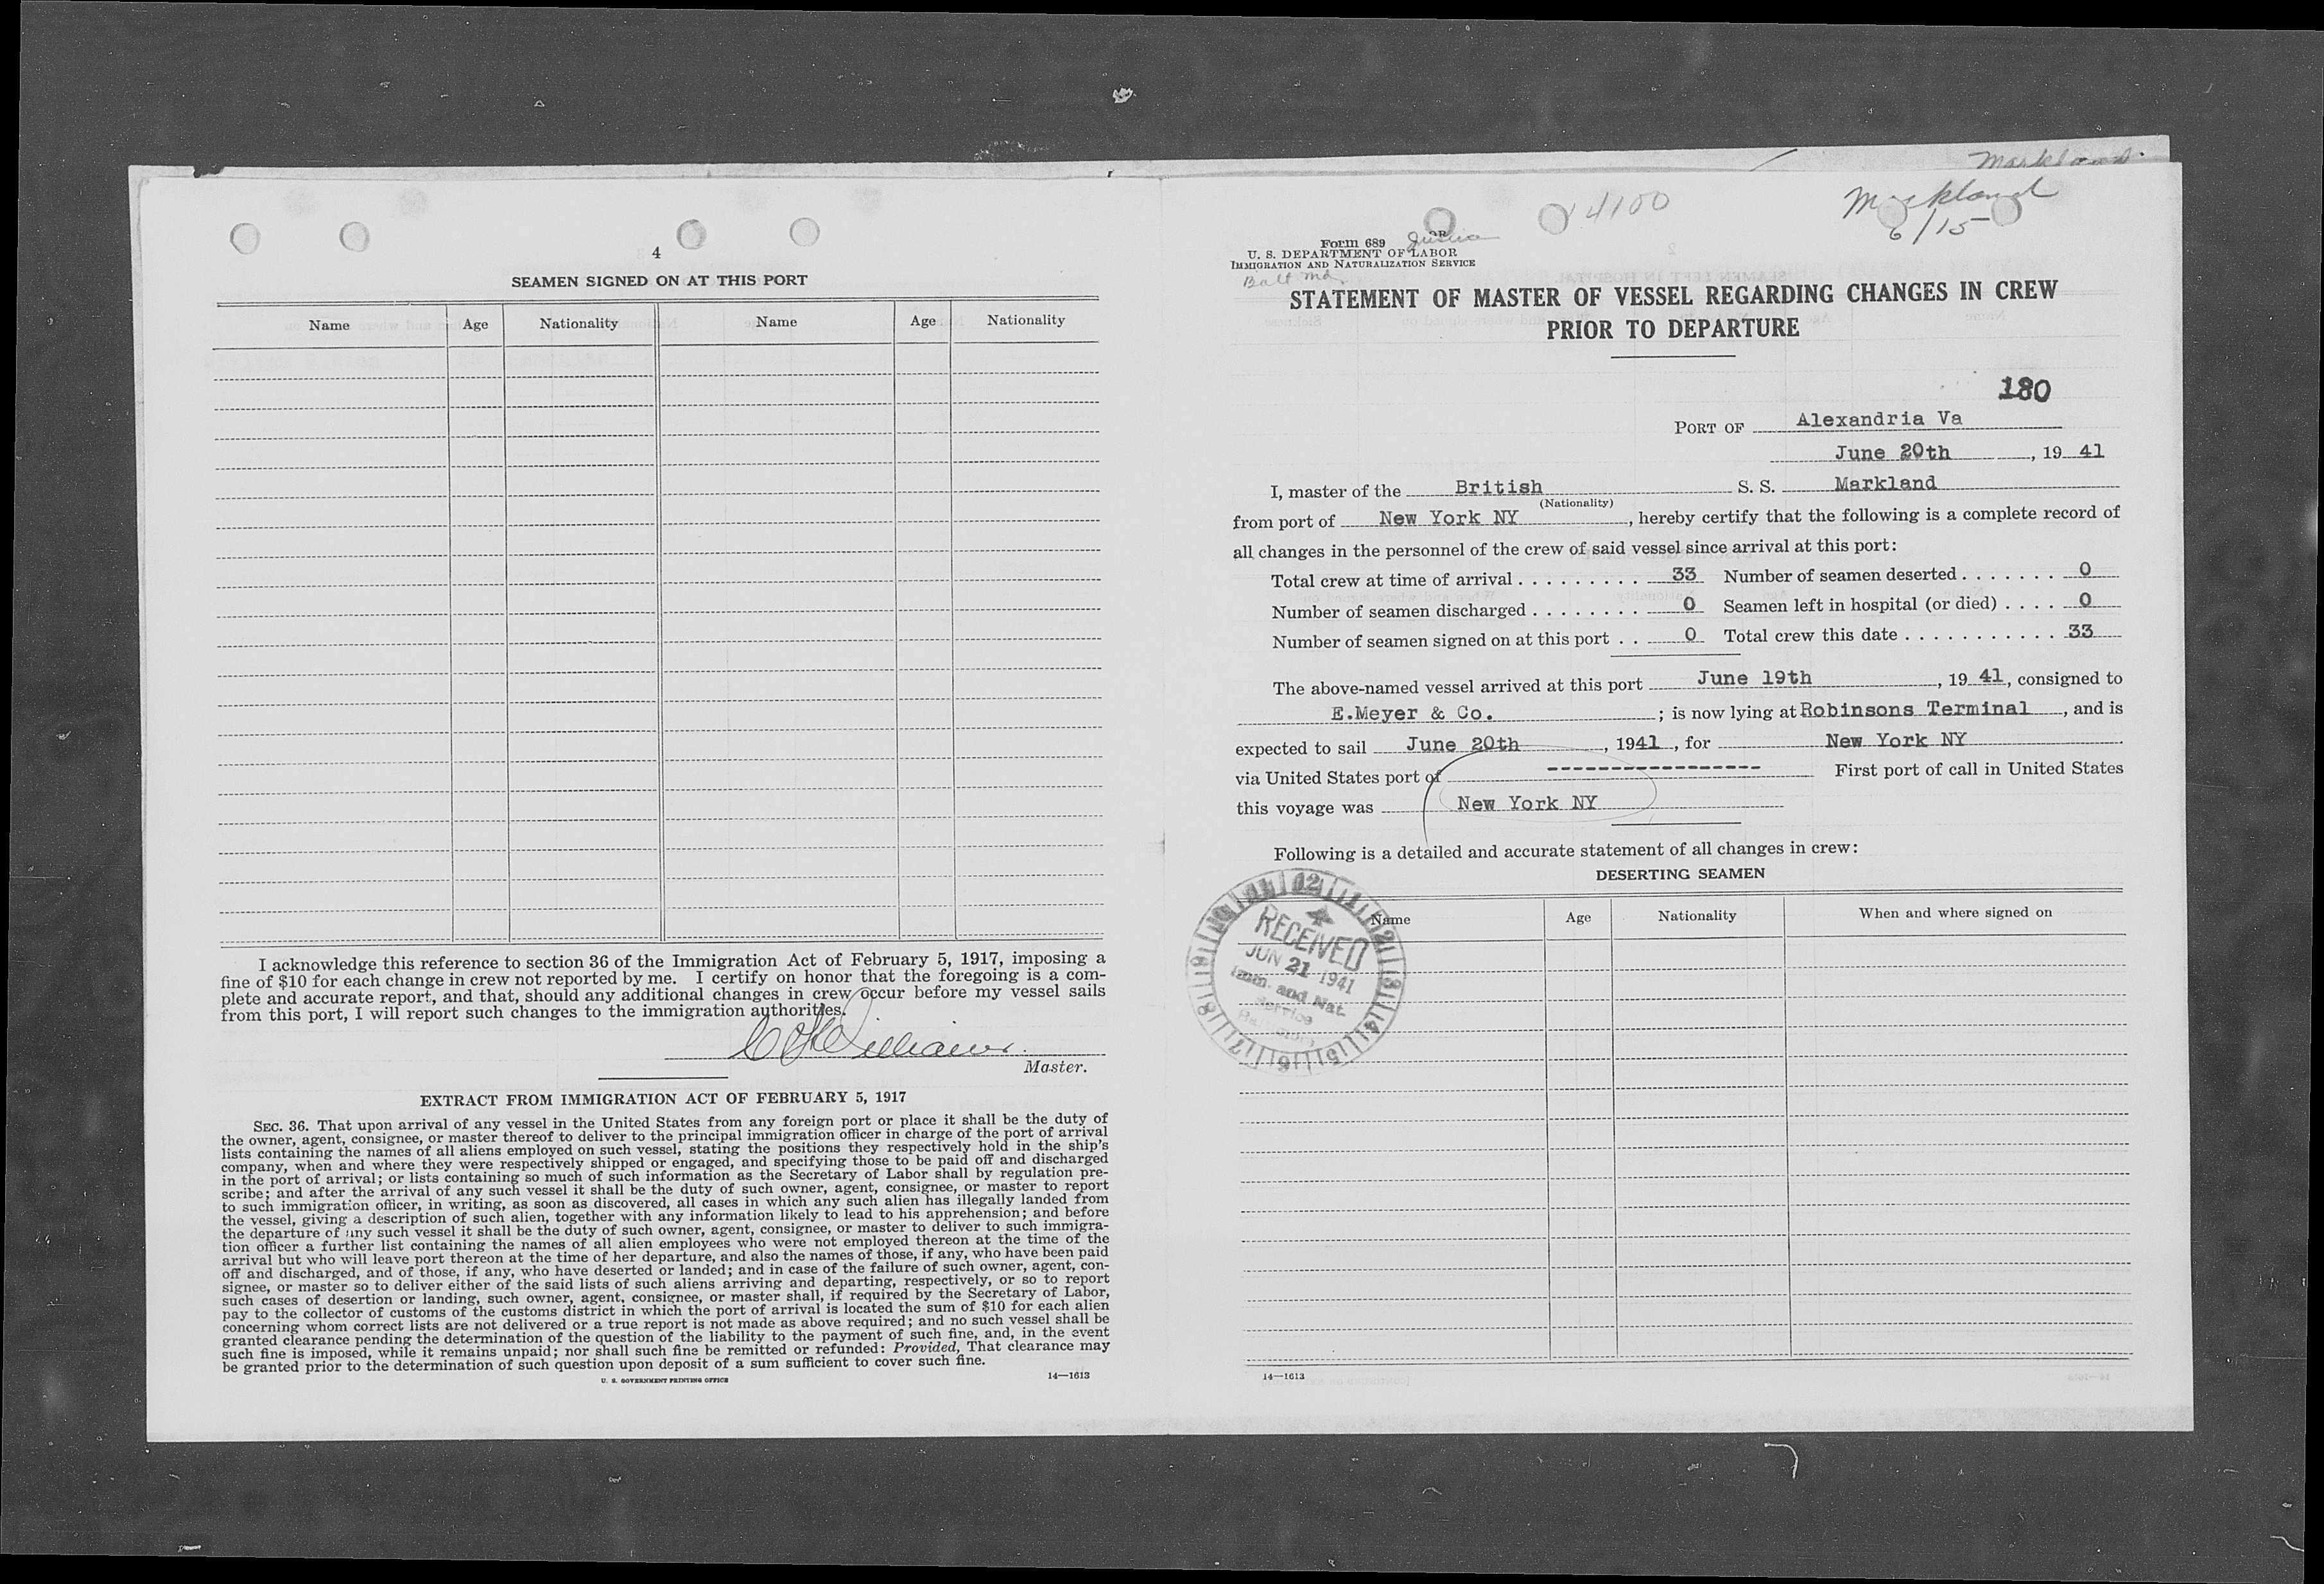 4
SEAMEN SIGNED ON AT THIS PORT
Name Age Nationality Name Age Nationality
I acknowledge this reference to section 36 of the Immigration Act of February 5, 1917, imposing a
fine of $10 for each change in crew not reported by me. I certify on honor that the foregoing is a com-
plete and accurate report, and that, should any additional changes in crew occur before my vessel sails
from this port, I will report such changes to the immigration authorities.
Williams
Master.
EXTRACT FROM IMMIGRATION ACT OF FEBRUARY 5, 1917
SEC. 36. That upon arrival of any vessel in the United States from any foreign port or place it shall be the duty of
the owner, agent, consignee, or master thereof to deliver to the principal immigration officer in charge of the port of arrival
lists containing the names of all aliens employed on such vessel, stating the positions they respectively hold in the ship's
company, when and where they were respectively shipped or engaged, and specifying those to be paid off and discharged
in the port of arrival; or lists containing so much of such information as the Secretary of Labor shall by regulation pre-
scribe; and after the arrival of any such vessel it shall be the duty of such owner, agent, consignee, or master to report
to such immigration officer, in writing, as soon as discovered, all cases in which any such alien has illegally landed from
the vessel, giving a description of such alien, together with any information likely to lead to his apprehension; and before
the departure of any such vessel it shall be the duty of such owner, agent, consignee, or master to deliver to such immigra-
tion officer a further list containing the names of all alien employees who were not employed thereon at the time of the
arrival but who will leave port thereon at the time of her departure, and also the names of those, if any, who have been paid
off and discharged, and of those, if any, who have deserted or landed; and in case of the failure of such owner, agent, con-
signee, or master so to deliver either of the said lists of such aliens arriving and departing, respectively, or so to report
such cases of desertion or landing, such owner, agent, consignee, or master shall, if required by the Secretary of Labor,
pay to the collector of customs of the customs district in which the port of arrival is located the sum of $10 for each alien
concerning whom correct lists are not delivered or a true report is not made as above required; and no such vessel shall be
granted clearance pending the determination of the question of the liability to the payment of such fine, and, in the event
such fine is imposed, while it remains unpaid; nor shall such fine be remitted or refunded: Provided, That clearance may
be granted prior to the determination of such question upon deposit of a sum sufficient to cover such fine.
U. S. GOVERNMENT PRINTING OFFICE 14—1613
Markland
4100
Markland
6/15
Form 689
U. S. DEPARTMENT OF LABOR
IMMIGRATION AND NATURALIZATION SERVICE
Balt Md.
STATEMENT OF MASTER OF VESSEL REGARDING CHANGES IN CREW
PRIOR TO DEPARTURE
180
PORT OF Alexandria Va
June 20th, 19 41
I, master of the British S. S. Markland
(Nationality)
from port of New York NY, hereby certify that the following is a complete record of
all changes in the personnel of the crew of said vessel since arrival at this port:
Total crew at time of arrival . . . . . . . . . . 33 Number of seamen deserted . . . . . . . 0
Number of seamen discharged . . . . . . . . 0 Seamen left in hospital (or died) . . . . 0
Number of seamen signed on at this port . . 0 Total crew this date . . . . . . . . . . . 33
The above-named vessel arrived at this port June 19th, 19 41, consigned to
E.Meyer & Co.; is now lying at Robinsons Terminal, and is
expected to sail June 20th, 1941, for New York NY
via United States port of ----------------- First port of call in United States
this voyage was New York NY
Following is a detailed and accurate statement of all changes in crew:
DESERTING SEAMEN
Name Age Nationality When and where signed on
12 1 2 3 4 5 6 7 8 9 10 11
RECEIVED
JUN 21 1941
Imm. and Nat.
Service
14—1613